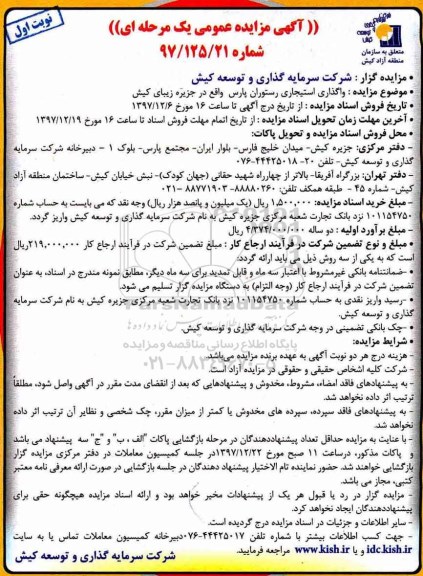 نوبت اول
(( آگهی مزایده عمومی یک مرحله ای))
شماره ۹۷/۱۲۵/۲۱
متعلق به سازمان
منطقه آزاد کیش
• مزایده گزار : شرکت سرمایه گذاری و توسعه کیش
• موضوع مزایده : واگذاری استیجاری رستوران پارس واقع در جزیره زیبای کیش
• تاریخ فروش اسناد مزایده : از تاریخ درج آگهی تا ساعت ۱۶ مورخ ۱۳۹۷/۱۲/۶
• آخرین مهلت زمان تحویل اسناد مزایده : از تاریخ اتمام مهلت فروش اسناد تا ساعت ۱۶ مورخ ۱۳۹۷/۱۲/۱۹
• محل فروش اسناد مزایده و تحویل پاکات:
- دفتر مرکزی: جزیره کیش- میدان خلیج فارس- بلوار ایران- مجتمع پارس- بلوک ۱ – دبیرخانه شرکت سرمایه
گذاری و توسعه کیش- تلفن ۲۰- ۴۴۴۲۵۰۱۸-۰۷۶
- دفتر تهران: بزرگراه آفریقا- بالاتر از چهارراه شهید حقانی (جهان کودک)- نبش خیابان کیش- ساختمان منطقه آزاد
کیش- شماره ۴۵ - طبقه همکف تلفن: ۸۸۸۸۰۲۶۰- ۸۸۷۷۱۹۰۳ -۰۲۱
- مبلغ خرید اسناد مزایده: ۱,۵۰۰,۰۰۰ ریال (یک میلیون و پانصد هزار ریال) وجه نقد که می بایست به حساب شماره
۱۰۱۱۵۴۷۵۰ نزد بانک تجارت شعبه مرکزی جزیره کیش به نام شرکت سرمایه گذاری و توسعه کیش واریز گردد.
- مبلغ برآورد اولیه : دو ساله ۴/۳۷۴/۰۰۰/۰۰۰ ریال
- مبلغ و نوع تضمین شرکت در فرآیند ارجاع کار : مبلغ تضمین شرکت در فرآیند ارجاع کار ۲۱۹,۰۰۰,۰۰۰ریال
است که به یکی از سه روش ذیل می باید ارائه گردد:
-ضمانتنامه بانکی غیرمشروط با اعتبار سه ماه و قابل تمدید برای سه ماه دیگر، مطابق نمونه مندرج در اسناد، به عنوان
تضمین شرکت در فرآیند ارجاع کار (وجه التزام) به دستگاه مزایده گزار تسلیم می شود.
-رسید واریز نقدی به حساب شماره ۱۰۱۱۵۴۷۵۰ نزد بانک تجارت شعبه مرکزی جزیره کیش به نام شرکت سرمایه
گذاری و توسعه کیش.
-چک بانکی تضمینی در وجه شرکت سرمایه گذاری و توسعه کیش.
• شرایط مزایده:
- هزینه درج هر دو نوبت آگهی به عهده برنده مزایده می‌باشد.
- شرکت کلیه اشخاص حقیقی و حقوقی در مزایده آزاد است.
- به پیشنهادهای فاقد امضاء، مشروط، مخدوش و پیشنهادهایی که بعد از انقضای مدت مقرر در آگهی واصل شود، مطلقاً
ترتیب اثر داده نخواهد شد.
- به پیشنهادهای فاقد سپرده، سپرده های مخدوش یا کمتر از میزان مقرر، چک شخصی و نظایر آن ترتیب اثر داده
نخواهد شد.
- با عنایت به مزایده حداقل تعداد پیشنهاددهندگان در مرحله بازگشایی پاکات "الف ، ب" و "ج" سه پیشنهاد می باشد
و پاکات مذکور، درساعت ۱۱ صبح مورخ ۱۳۹۷/۱۲/۲۲در جلسه کمیسیون معاملات در دفتر مرکزی مزایده گزار
بازگشایی خواهند شد. حضور نماینده تام الاختیار پیشنهاد دهندگان در جلسه بازگشایی در صورت ارائه معرفی نامه معتبر
کتبی، مجاز می باشد.
- مزایده گزار در رد یا قبول هر یک از پیشنهادات مخیر خواهد بود و ارائه اسناد مزایده هیچگونه حقی برای
پیشنهاددهندگان ایجاد نخواهد کرد.
- سایر اطلاعات و جزئیات در اسناد مزایده درج گردیده است.
- جهت کسب اطلاعات بیشتر با شماره تلفن ۴۴۴۲۵۰۱۷-۰۷۶دبیرخانه کمیسیون معاملات تماس یا به سایت
idc.kish.ir و یا www.kish.ir مراجعه فرمایید.
شرکت سرمایه گذاری و توسعه کیش
ParsNamadData
پایگاه اطلاع رسانی مناقصه و مزایده